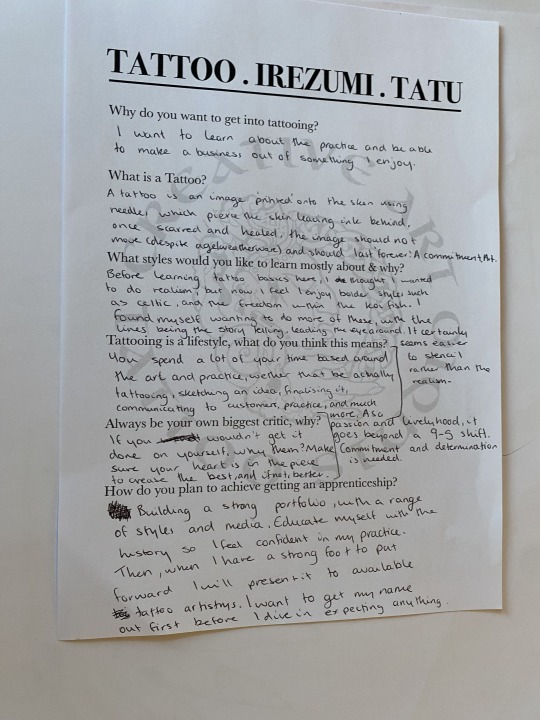 TATTOO . IREZUMI . TATU
Why do you want to get into tattooing?
I want to learn about the practice and be able
to make a business out of something I enjoy.
What is a Tattoo?
A tattoo is an image 'printed' onto the skin using
needles which pierce the skin leaving ink behind,
once scarred and healed, the image should not
move (despite age/weatherware) and should 'last forever'. A commitment, Art.
What styles would you like to learn mostly about & why?
Before learning tattoo basics here, I thought I wanted
to do realism, but now I feel I enjoy bolder styles such
as celtic, and the freedom within the koi fish. I
found myself wanting to do more of these, with the
lines being the story telling, leading the eye around. It certainly
seams easier
to stencil
rather than the
realism.
Tattooing is a lifestyle, what do you think this means?
You spend a lot of your time based around
the art and practice, wether that be actually
tattooing, sketching an idea, finalising it,
communicating to customers, practice, and much
more. As a
passion and livelyhood, it
goes beyond a 9-5 shift.
Commitment and determination
is needed.
Always be your own biggest critic, why?
If you wouldn't get it
done on yourself, why them? Make
sure your heart is in the piece
to crease the best, and if not, better.
How do you plan to achieve getting an apprenticeship?
Building a strong portfolio, with a range
of styles and media. Educate myself with the
history so I feel confident in my practice.
Then, when I have a strong foot to put
forward I will present it to available
tattoo artistys. I want to get my name
out first before I dive in expecting anything.